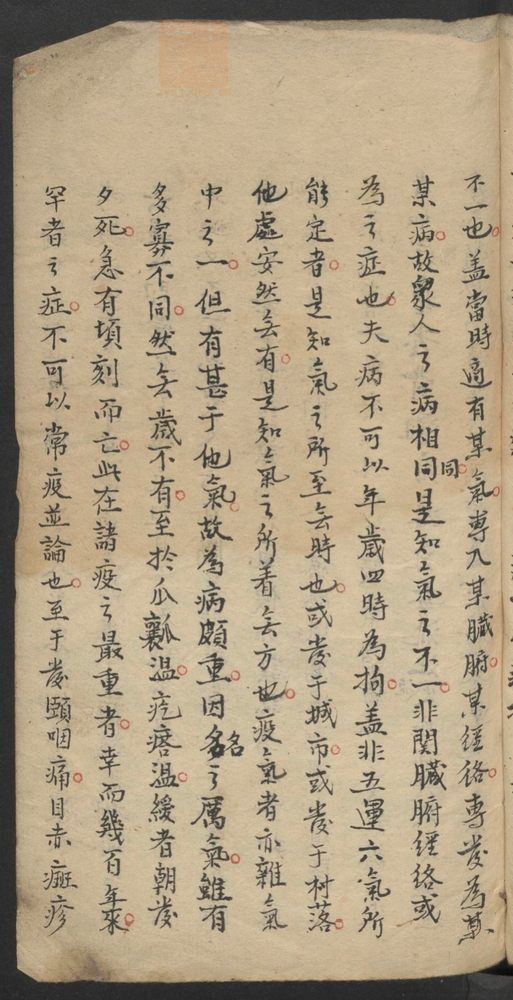 不一也盖當時適有某氣專入某臟腑某經絡專發為某
某病故眾人之病相同是知氣之不一非関臟腑經絡或
同
為之症也夫病不可以年歲四時為拘盖非五運六氣所
能定者是知氣之所至无時也或發于城市或發于村落
他處安然无有是知氣之所着无方也疫氣者亦雜氣
中之一但有甚于他氣故為病頗重因名之厲氣雖有
名
多寡不同然无歲不有至於瓜瓤温疙瘩温緩者朝發
夕死急有頃刻而亡此在諸疫之最重者幸而幾百年來
罕者之症不可以常疫並論也至于發頤咽痛目赤斑疹